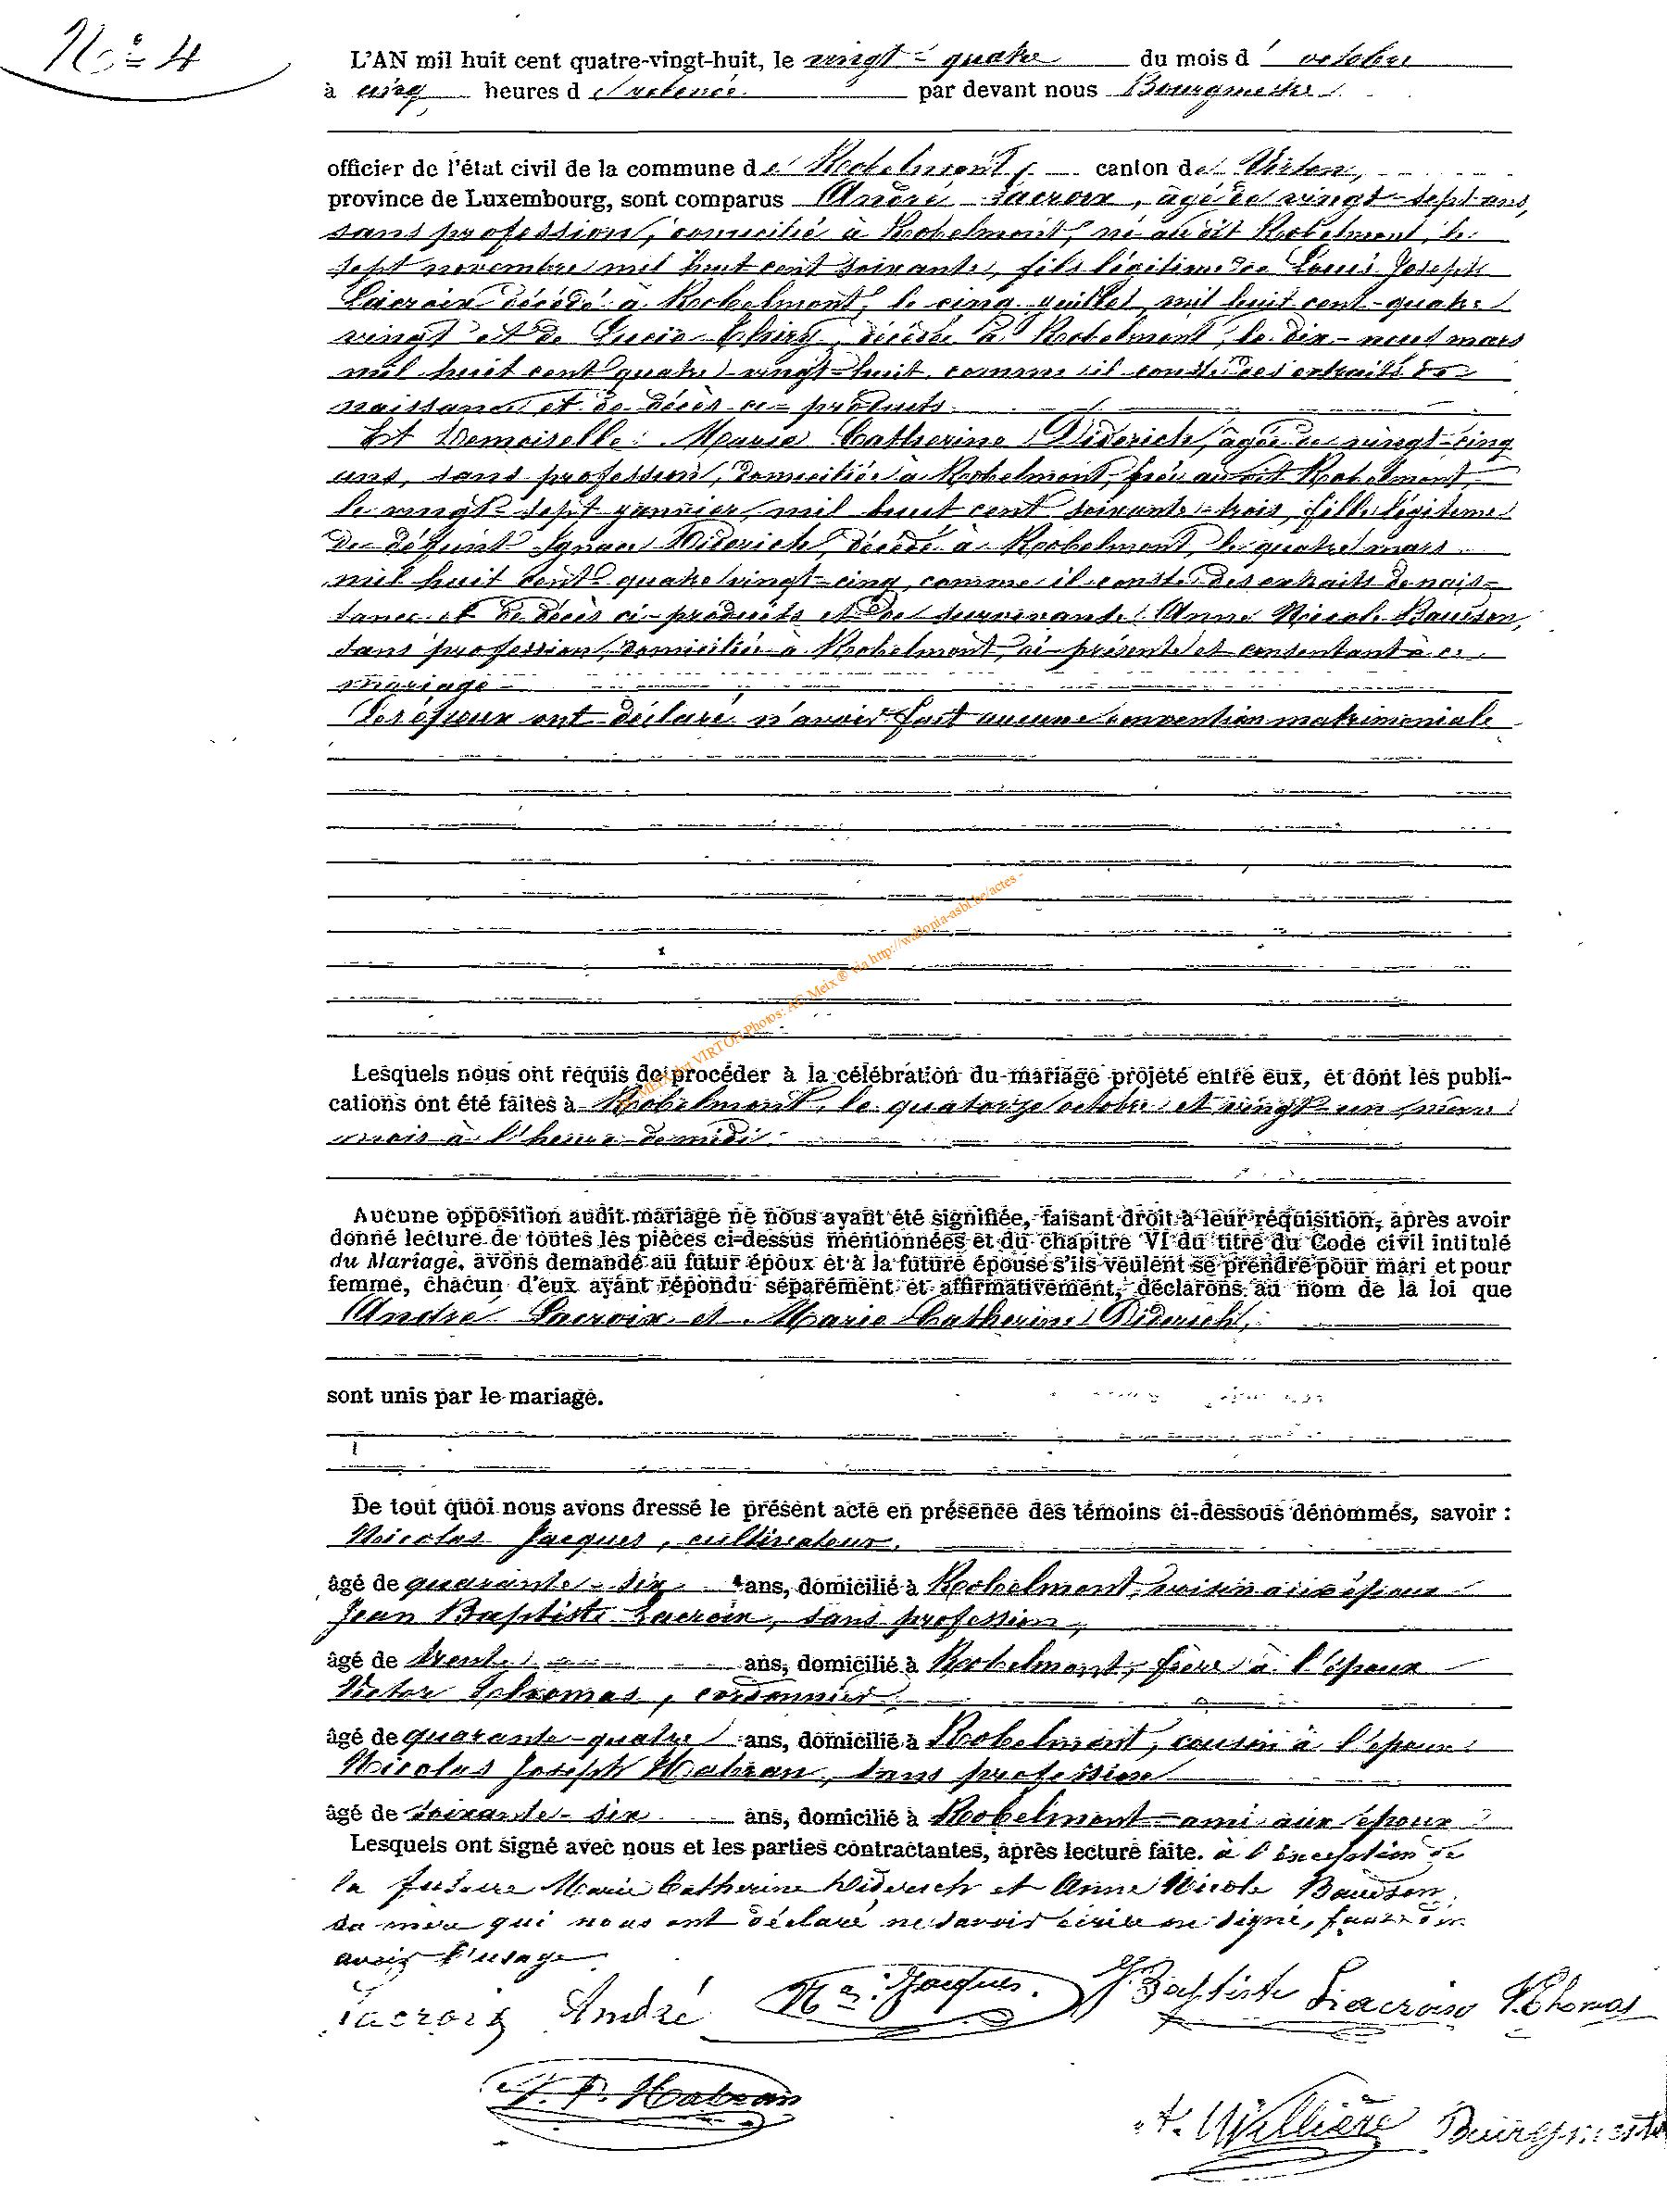 No= 4
L'AN mil huit cent quatre-vingt-huit, le vingt-quatre du mois d' octobre
à cinq heures d par devant nous Bourgmestre
officier de l'état civil de la commune de Robelmont, canton de Virton,
province de Luxembourg, sont comparus André Lacroix, âgé de vingt-sept ans,
sans profession, domicilié à Robelmont, né au dit Robelmont, le
sept novembre mil huit cent soixante, fils légitime de Louis Joseph
Lacroix décédé à Robelmont, le cinq juillet mil huit cent-quatre
vingt et de Lucie Thiry, décédée à Robelmont, le dix-neuf mars
mil huit cent quatre-vingt-huit, comme il conste des extraits de
naissance et de décès ci-produits.
Et Demoiselle Marie Catherine Diderich, âgée de vingt-cinq
ans, sans profession, domiciliée à Robelmont, née au dit Robelmont,
le vingt-sept janvier mil huit cent soixante-trois, fille légitime
de défunt Ignace Diderich, décédé à Robelmont, le quatre mars
mil huit cent quatre vingt-cinq, comme il conste des extraits de nais-
sance et de décès ci-produits et de survivante Anne Nicole Baudson,
sans profession, domiciliée à Robelmont, ci-présente et consentant à ce
mariage
Les époux ont déclaré n'avoir fait aucune convention matrimoniale
AC MEIX dvt VIRTON Photos: AC Meix ® via http://wallonia-asbl.be/actes -
Lesquels nous ont requis de procéder à la célébration du mariage projeté entre eux, et dont les publi-
cations ont été faites à Robelmont, le quatorze octobre et vingt-un même
mois à l'heure de midi.
Aucune opposition audit mariage ne nous ayant été signifiée, faisant droit à leur réquisition, après avoir
donné lecture de toutes les pièces ci-dessus mentionnées et du chapitre VI du titre du Code civil intitulé
du Mariage, avons demandé au futur époux et à la future épouse s'ils veulent se prendre pour mari et pour
femme, chacun d'eux ayant répondu séparément et affirmativement, déclarons au nom de la loi que
André Lacroix et Marie Catherine Diderich,
sont unis par le mariage.
De tout quoi nous avons dressé le présent acte en présence des témoins ci-dessous dénommés, savoir :
Nicolas Jacques, cultivateur,
âgé de quarante-six ans, domicilié à Robelmont, voisin aux époux
Jean Baptiste Lacroix, sans profession,
âgé de trente ans, domicilié à Robelmont, frère à l'époux
Victor Thomas, cordonnier
âgé de quarante-quatre ans, domicilié à Robelmont, cousin à l'époux
Nicolas Joseph Habran, sans profession
âgé de soixante-six ans, domicilié à Robelmont ami aux époux
Lesquels ont signé avec nous et les parties contractantes, après lecture faite. à l'exception de
la future Marie Catherine Diderich et Anne Nicole Baudson
sa mère qui nous ont déclaré ne savoir écrire ne signé, faute d'en
avoir l'usage.
Lacroix André Jacques. J. Baptiste Lacroix V. Thomas
Habran
Willière Bourgmestre